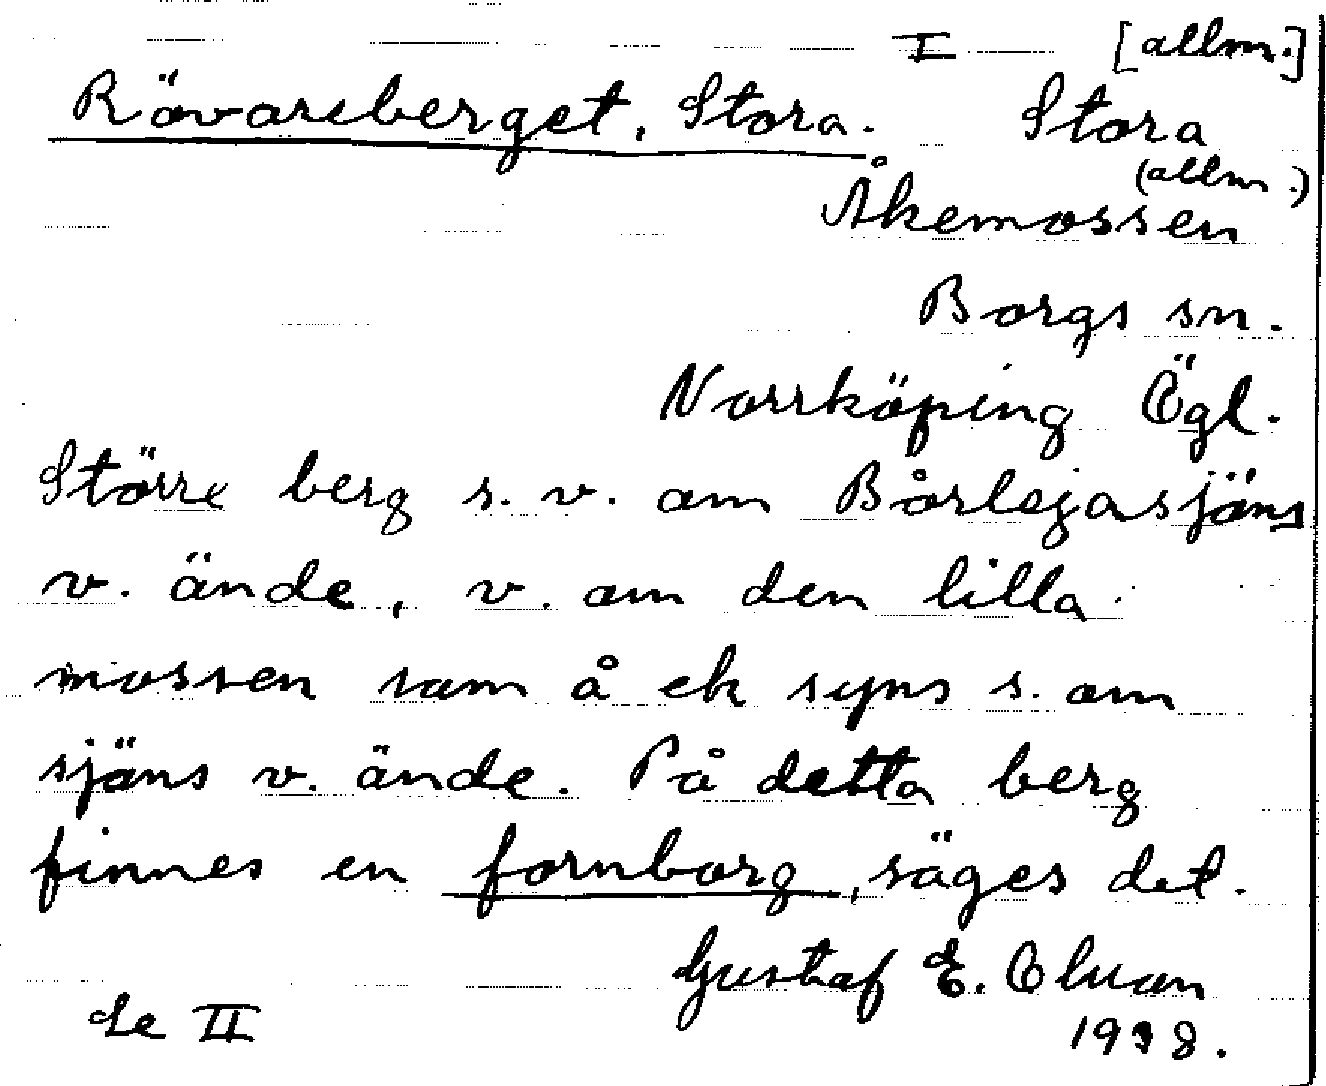 I [allm.]
Rövareberget, Stora. Stora
(allm.)
Åkemossen
Borgs sn.
Norrköping Ögl.
Större berg s. v. om Börlejasjöns
v. ände, v. om den lilla
mossen som å ek syns s. om
sjöns v. ände. På detta berg
finnes en fornborg, säges det.
Gustaf E.
Se II 1938.